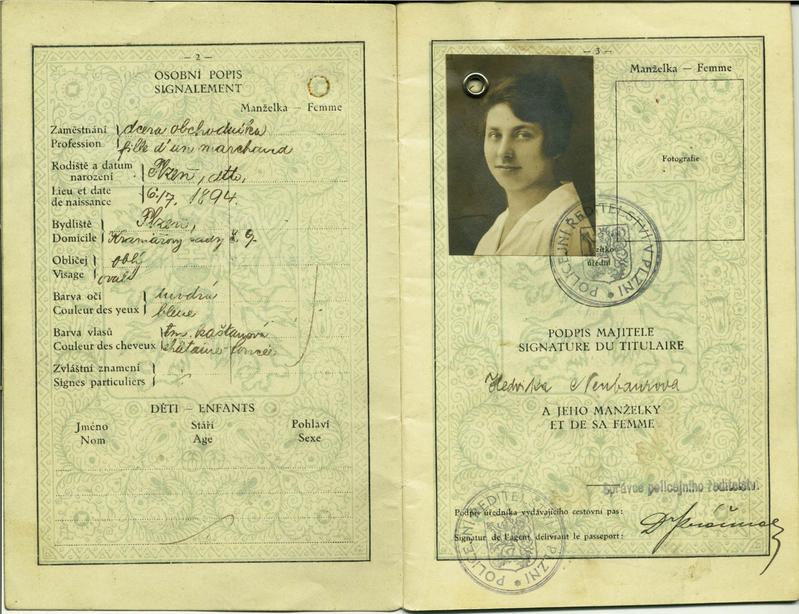 — 2 —
OSOBNÍ POPIS
SIGNALEMENT
Manželka — Femme
Zaměstnání dcera obchodníka
Profession fille d'un marchand
Rodiště a datum narození Plzeň,
Lieu et date de naissance 6./7. 1894.
Bydliště Plzeň,
Domicile Kramářovy sady č. 9.
Obličej oblý
Visage ovale
Barva očí modrá
Couleur des yeux bleue
Barva vlasů tm. kaštanová
Couleur des cheveux châtaine-foncée
Zvláštní znamení
Signes particuliers
DĚTI — ENFANTS
Jméno Stáří Pohlaví
Nom Age Sexe
— 3 —
Manželka — Femme
Fotografie
POLICEJNÍ ŘEDITELSTVÍ V PLZNI
PODPIS MAJITELE
SIGNATURE DU TITULAIRE
Hedvika Neubaurova
A JEHO MANŽELKY
ET DE SA FEMME
Správce policejního ředitelství
Podpis úředníka vydávajícího cestovní pas:
Signatur de l'agent délivrant le passeport:
POLICEJNÍ ŘEDITELSTVÍ V PLZNI